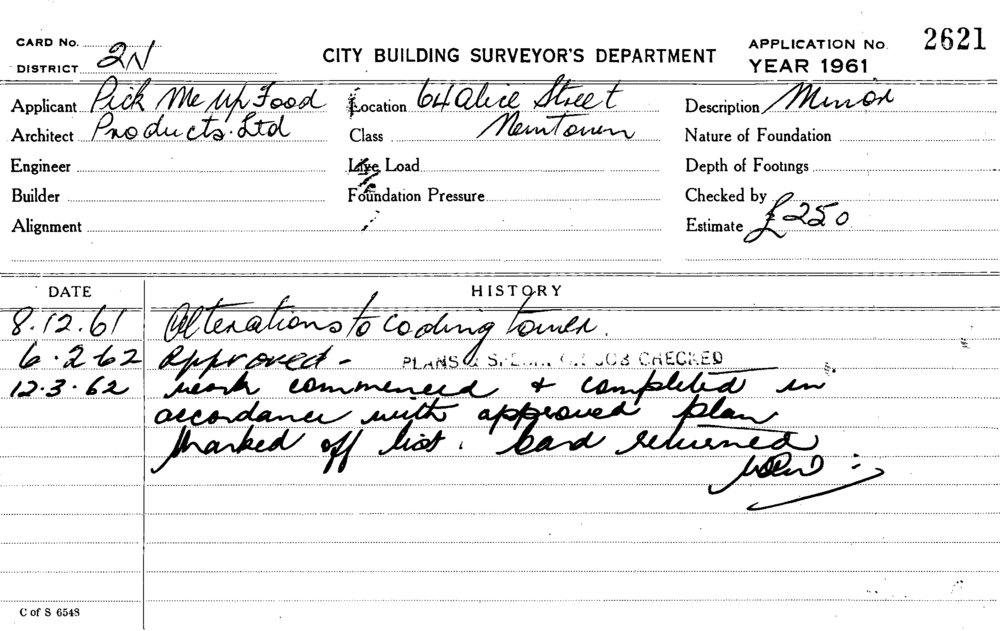 CARD No.
DISTRICT 2N
CITY BUILDING SURVEYOR'S DEPARTMENT
APPLICATION No. 2621
YEAR 1961
Applicant Pick Me Up Food Location 64 Alice Street Description Minor
Architect Products. Ltd Class Newtown Nature of Foundation
Engineer Live Load Depth of Footings
Builder Foundation Pressure Checked by
Alignment Estimate £250
DATE HISTORY
8.12.61 Alterations to cooling tower.
6.2.62 Approved - PLANS & JOB CHECKED
12.3.62 work commenced & completed in
accordance with approved plan
Marked off list. Card returned
C of S 6548